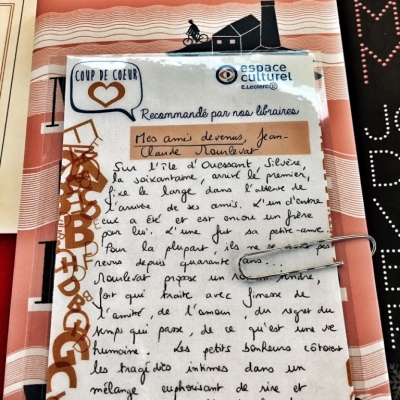 COUP DE COEUR
espace
culturel
E.Leclerc
Recommandé par nos libraires
Mes amis devenus, Jean-
Claude Mourlevat
Sur l'île d'Ouessant, Silvère,
la soixantaine, arrivé le premier,
fixe le large dans l'attente de
l'arrivée de ses amis. L'un d'entre
eux a été et est encore un frère
pour lui. L'une fut sa petite-amie.
Pour la plupart, ils ne se sont pas
revus depuis quarante ans...
Mourlevat propose un roman tendre,
fort qui traite avec finesse de
l'amitié, de l'amour, du regret du
temps qui passe, de ce qu'est une vie
humaine. Les petits bonheurs côtoient
les tragédies intimes dans un
mélange euphorisant de rire et